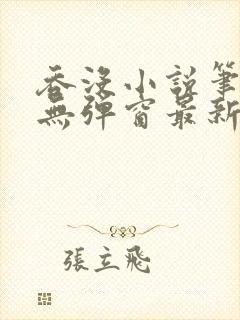 吞没小說筆
無彈窗最新
張立飛